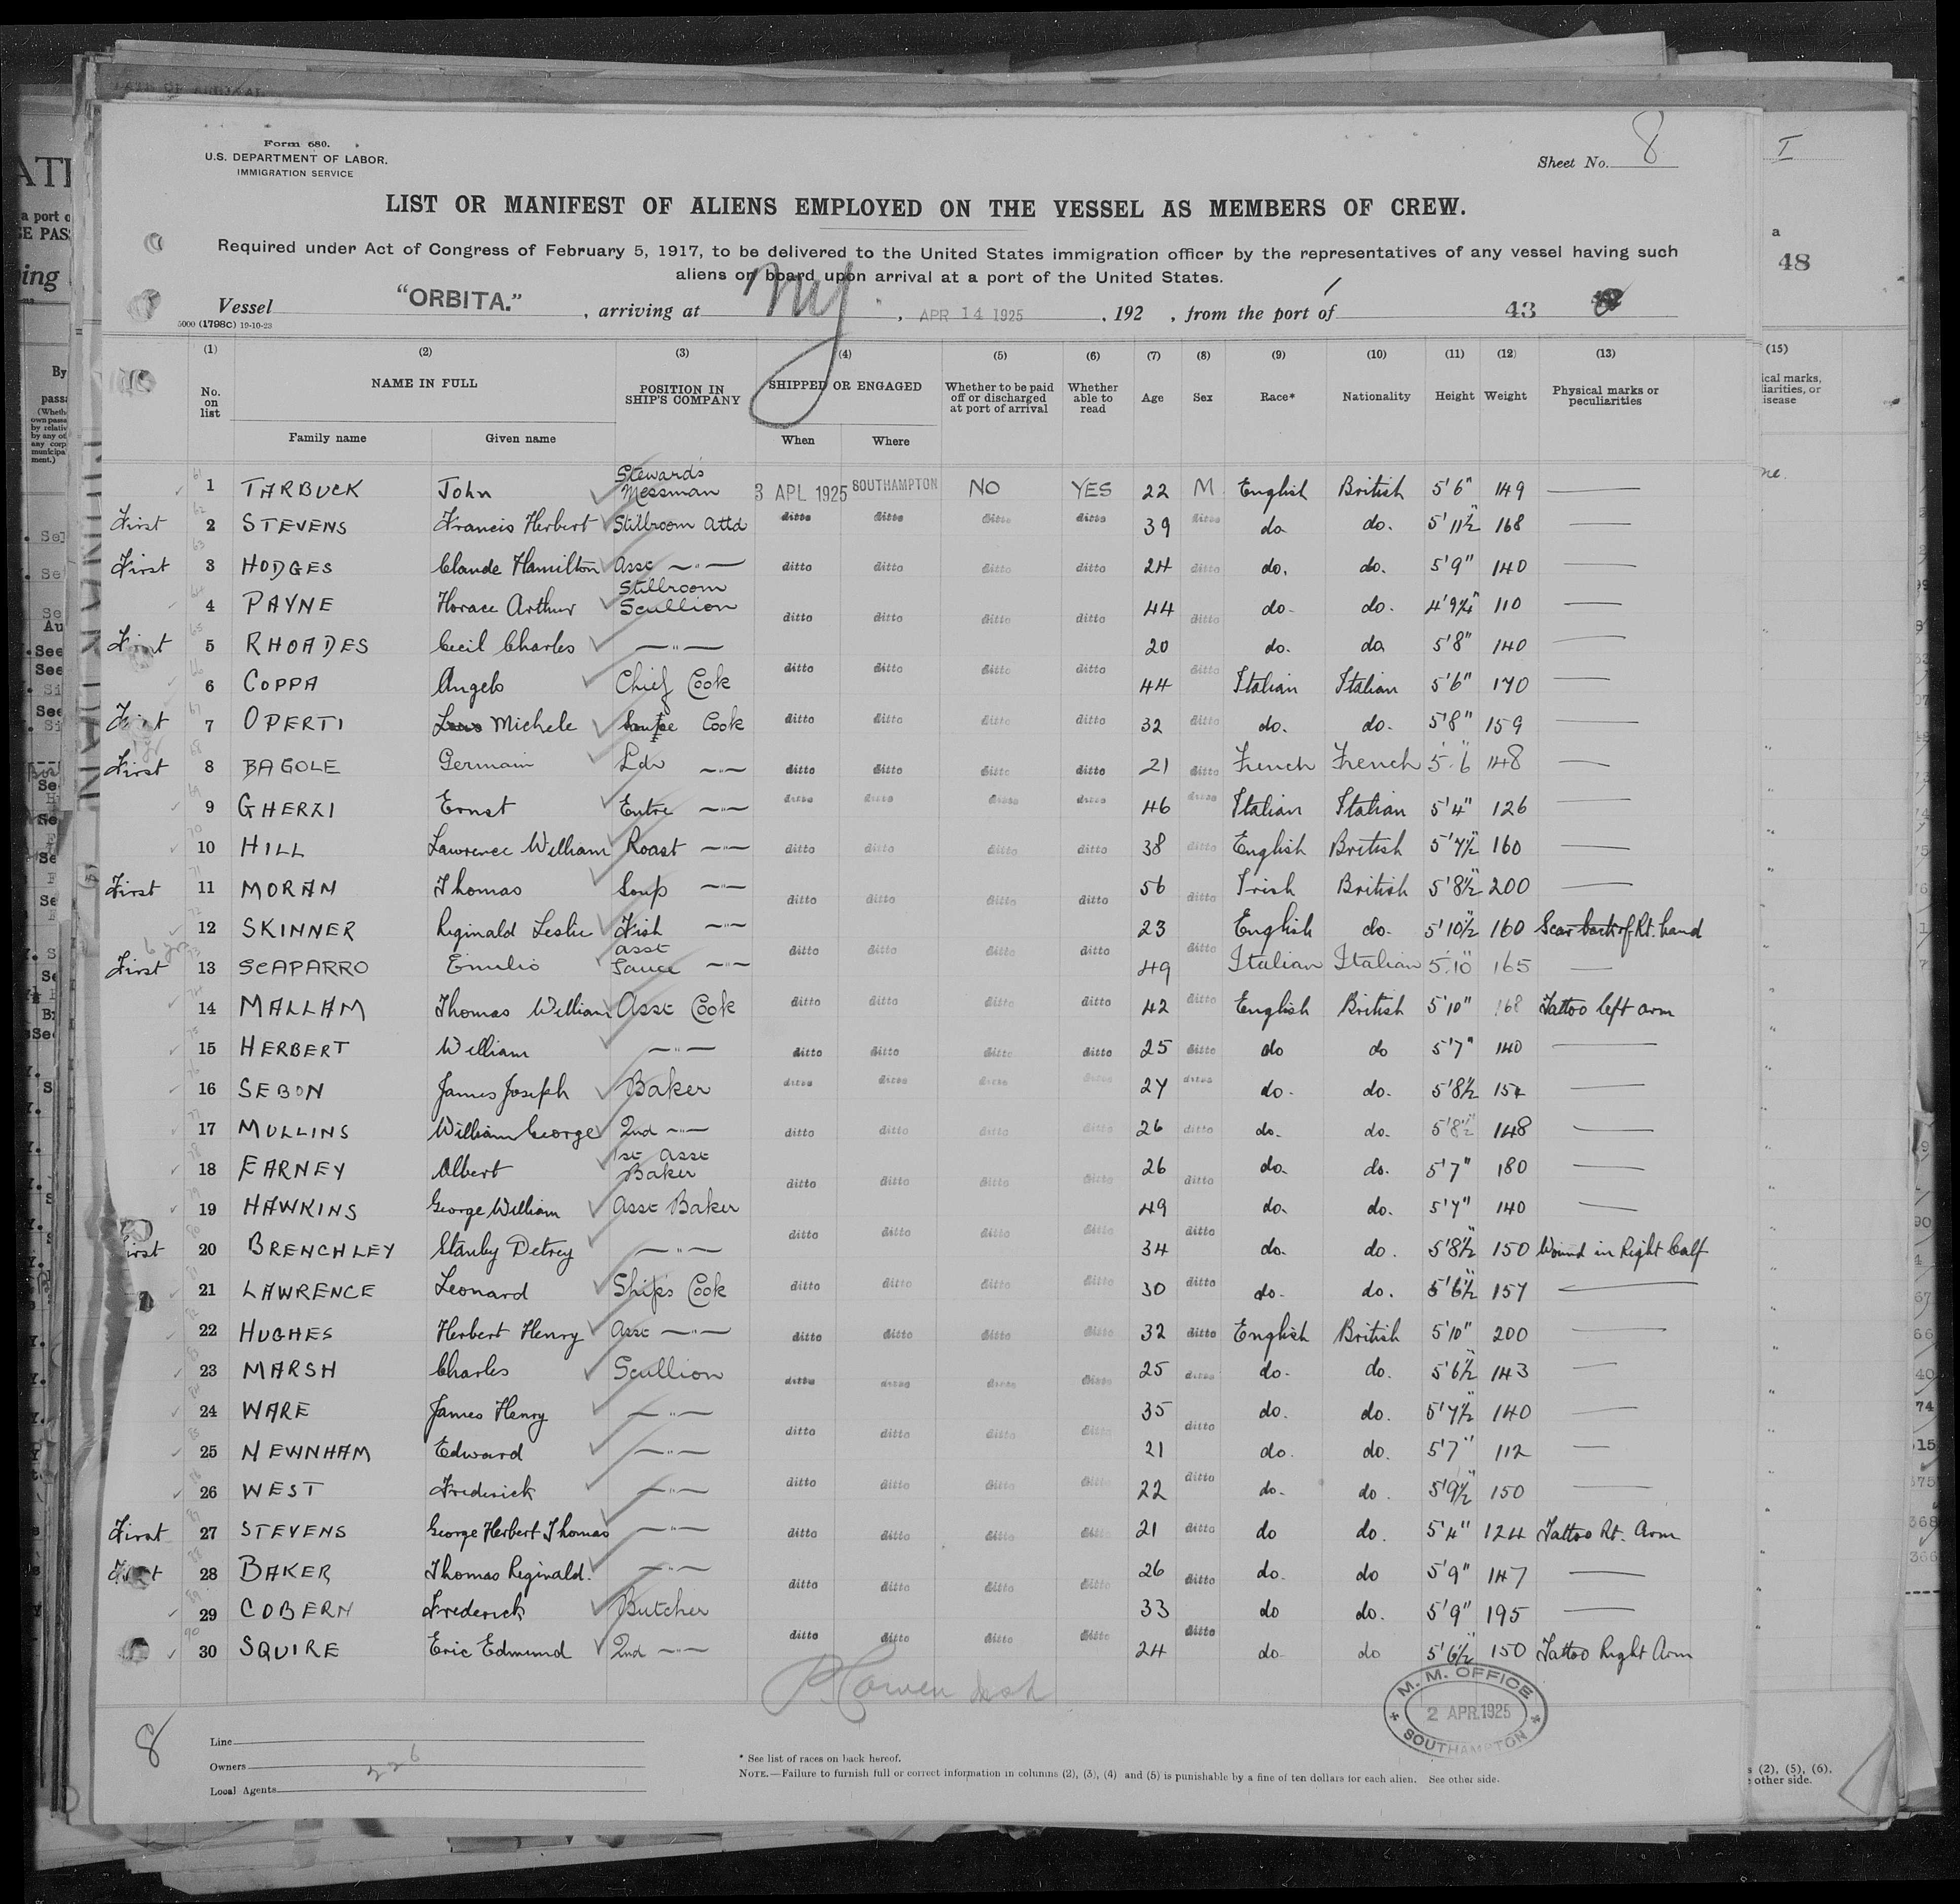 Form 680.
U.S. DEPARTMENT OF LABOR.
IMMIGRATION SERVICE
Sheet No. 8
LIST OR MANIFEST OF ALIENS EMPLOYED ON THE VESSEL AS MEMBERS OF CREW.
Required under Act of Congress of February 5, 1917, to be delivered to the United States immigration officer by the representatives of any vessel having such
aliens on board upon arrival at a port of the United States.
Vessel "ORBITA." , arriving at NY , APR 14 1925 , 192 , from the port of 43
5000 (1798C) 19-10-23
(1) (2) (3) (4) (5) (6) (7) (8) (9) (10) (11) (12) (13)
No. on list NAME IN FULL POSITION IN SHIP'S COMPANY SHIPPED OR ENGAGED Whether to be paid off or discharged at port of arrival Whether able to read Age Sex Race* Nationality Height Weight Physical marks or peculiarities
Family name Given name When Where
1 TARBUCK John Stewards Messman 3 APL 1925 SOUTHAMPTON NO YES 22 M English British 5'6" 149 —
First 2 STEVENS Francis Herbert Stillroom Attd ditto ditto ditto ditto 39 ditto do do. 5'11½" 168 —
First 3 HODGES Claude Hamilton Asst —"— ditto ditto ditto ditto 24 ditto do. do. 5'9" 140 —
4 PAYNE Horace Arthur Stillroom Scullion ditto ditto ditto ditto 44 ditto do. do. 4'9¾" 110 —
First 5 RHOADES Cecil Charles —"— 20 do. do 5'8" 140 —
6 COPPA Angelo Chief Cook ditto ditto ditto ditto 44 ditto Italian Italian 5'6" 170 —
First 7 OPERTI Michele Cook ditto ditto ditto ditto 32 ditto do. do. 5'8" 159 —
First 8 BAGOLE Germain Ldr —"— ditto ditto ditto ditto 21 ditto French French 5'6" 148 —
9 GHERZI Ernst Entre —"— ditto ditto ditto ditto 46 ditto Italian Italian 5'4" 126 —
10 HILL Lawrence William Roast —"— ditto ditto ditto ditto 38 ditto English British 5'7½" 160 —
First 11 MORAN Thomas Soup —"— ditto ditto ditto ditto 56 ditto Irish British 5'8½" 200 —
12 SKINNER Reginald Leslie Fish —"— ditto ditto ditto ditto 23 ditto English do. 5'10½" 160 Scar back of Rt. hand
6 yrs
First 13 SCAPARRO Emilio asst Sauce —"— 49 Italian Italian 5'10" 165 —
14 MALLAM Thomas William Asst Cook ditto ditto ditto ditto 42 ditto English British 5'10" 168 Tattoo left arm
15 HERBERT William —"— ditto ditto ditto ditto 25 ditto do do 5'7" 140 —
16 SEBON James Joseph Baker ditto ditto ditto ditto 27 ditto do. do. 5'8½ 154 —
17 MULLINS William George 2nd —"— ditto ditto ditto ditto 26 ditto do. do. 5'8½" 148 —
18 EARNEY Albert 1st Asst Baker ditto ditto ditto ditto 26 ditto do. do. 5'7" 180 —
19 HAWKINS George William Asst Baker 49 do. do. 5'7" 140 —
First 20 BRENCHLEY Stanley Detrey —"— ditto ditto ditto ditto 34 ditto do. do. 5'8½" 150 Wound in Right Calf
21 LAWRENCE Leonard Ship's Cook ditto ditto ditto ditto 30 ditto do. do. 5'6½" 157 —
22 HUGHES Herbert Henry Asst —"— ditto ditto ditto ditto 32 ditto English British 5'10" 200 —
23 MARSH Charles Scullion ditto ditto ditto ditto 25 ditto do. do. 5'6½" 143 —
24 WARE James Henry —"— ditto ditto ditto ditto 35 ditto do. do. 5'7½ 140 —
25 NEWNHAM Edward —"— 21 do. do. 5'7" 112 —
26 WEST Frederick —"— ditto ditto ditto ditto 22 ditto do. do. 5'9½" 150 —
First 27 STEVENS George Herbert Thomas —"— ditto ditto ditto ditto 21 ditto do do. 5'4" 124 Tattoo Rt. Arm
First 28 BAKER Thomas Reginald. —"— ditto ditto ditto ditto 26 ditto do. do 5'9" 147 —
29 COBERN Frederick Butcher 33 do do. 5'9" 195 —
30 SQUIRE Eric Edmund 2nd —"— ditto ditto ditto ditto 24 ditto do do 5'6½" 150 Tattoo Right Arm
M. M. OFFICE
2 APR. 1925
SOUTHAMPTON
8
Line
Owners 226
Local Agents
* See list of races on back hereof.
NOTE.—Failure to furnish full or correct information in columns (2), (3), (4) and (5) is punishable by a fine of ten dollars for each alien. See other side.
I
a
48
(15)
s (2), (5), (6).
other side.